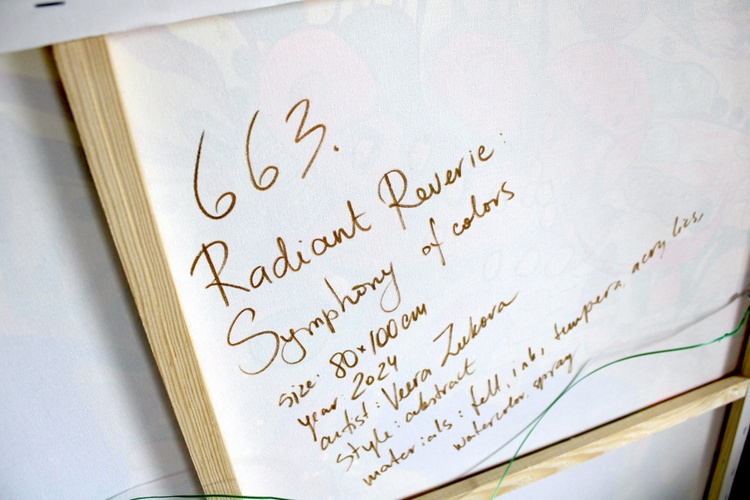 663.
Radiant Reverie:
Symphony of colors
size: 80×100cm
year: 2024
artist: Veera Zukova
style: abstract
materials: felt, ink, tempera, acrylics,
watercolor, spray